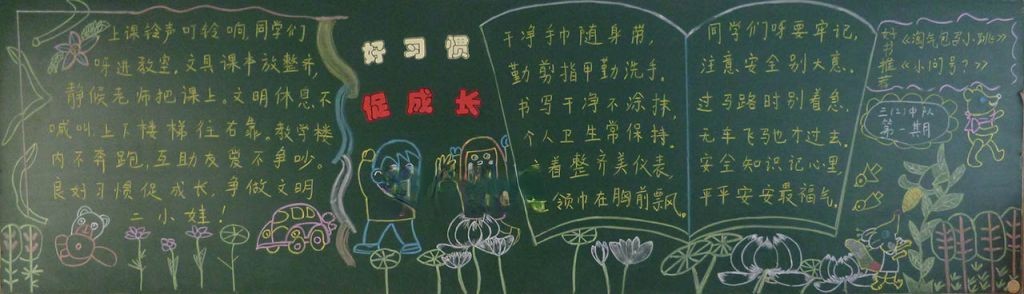 上课铃声叮铃响,同学们
呀进教室。文具课本放整齐,
静候老师把课上。文明休息不
喊叫,上下楼梯往右靠。教学楼
内不奔跑,互助友爱不争吵。
良好习惯促成长,争做文明
二小娃!
好习惯
促成长
干净手巾随身带,
勤剪指甲勤洗手。
书写干净不涂抹,
个人卫生常保持。
衣着整齐美仪表,
领巾在胸前飘。
同学们呀要牢记,
注意安全别大意。
过马路时别着急,
无车飞马也才过去。
安全知识记心里,
平平安安最福气。
好书推荐
《淘气包马小跳》
《小问号?》
二(2)中队
第一期